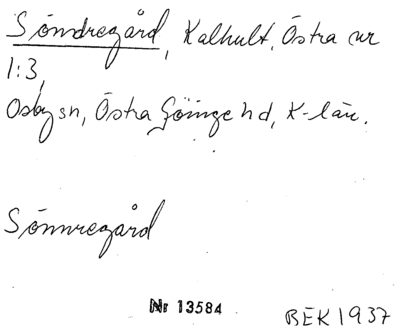 Söndregård, Kalhult, Östra nr
1:3,
Osby sn, Östra Göinge hd, K-län.
Sönnregård
Nr 13584
BEK 1937